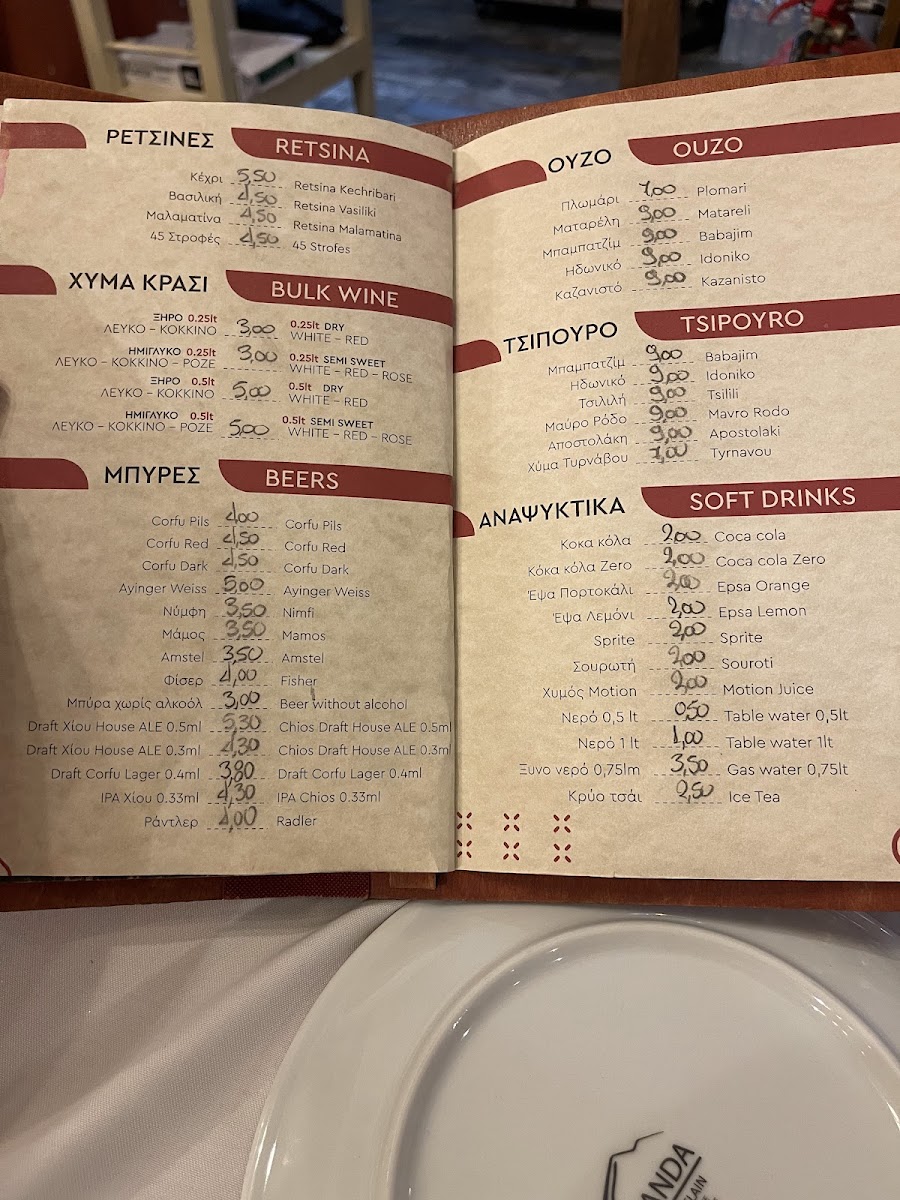 ΡΕΤΣΙΝΕΣ RETSINA
Κέχρι 5,50 Retsina Kechribari
Βασιλική 4,50 Retsina Vasiliki
Μαλαματίνα 4,50 Retsina Malamatina
45 Στροφές 4,50 45 Strofes
ΧΥΜΑ ΚΡΑΣΙ BULK WINE
ΞΗΡΟ 0.25lt 0.25lt DRY
ΛΕΥΚΟ – ΚΟΚΚΙΝΟ 3,00 WHITE – RED
ΗΜΙΓΛΥΚΟ 0.25lt 0.25lt SEMI SWEET
ΛΕΥΚΟ – ΚΟΚΚΙΝΟ – ΡΟΖΕ 3,00 WHITE – RED – ROSE
ΞΗΡΟ 0.5lt 0.5lt DRY
ΛΕΥΚΟ – ΚΟΚΚΙΝΟ 5,00 WHITE – RED
ΗΜΙΓΛΥΚΟ 0.5lt 0.5lt SEMI SWEET
ΛΕΥΚΟ – ΚΟΚΚΙΝΟ – ΡΟΖΕ 5,00 WHITE – RED – ROSE
ΜΠΥΡΕΣ BEERS
Corfu Pils 4,00 Corfu Pils
Corfu Red 4,50 Corfu Red
Corfu Dark 4,50 Corfu Dark
Ayinger Weiss 5,00 Ayinger Weiss
Νύμφη 3,50 Nimfi
Μάμος 3,50 Mamos
Amstel 3,50 Amstel
Φίσερ 4,00 Fisher
Μπύρα χωρίς αλκοόλ 3,00 Beer without alcohol
Draft Χίου House ALE 0.5ml 5,30 Chios Draft House ALE 0.5ml
Draft Χίου House ALE 0.3ml 4,30 Chios Draft House ALE 0.3ml
Draft Corfu Lager 0.4ml 3,80 Draft Corfu Lager 0.4ml
IPA Χίου 0.33ml 4,30 IPA Chios 0.33ml
Ράντλερ 4,00 Radler
ΟΥΖΟ OUZO
Πλωμάρι 7,00 Plomari
Ματαρέλη 9,00 Matareli
Μπαμπατζίμ 9,00 Babajim
Ηδωνικό 9,00 Idoniko
Καζανιστό 9,00 Kazanisto
ΤΣΙΠΟΥΡΟ TSIPOYRO
Μπαμπατζίμ 9,00 Babajim
Ηδωνικό 9,00 Idoniko
Τσιλιλή 9,00 Tsilili
Μαύρο Ρόδο 9,00 Mavro Rodo
Αποστολάκη 9,00 Apostolaki
Χύμα Τυρνάβου 7,00 Tyrnavou
ΑΝΑΨΥΚΤΙΚΑ SOFT DRINKS
Κοκα κόλα 2,00 Coca cola
Κόκα κόλα Zero 2,00 Coca cola Zero
Έψα Πορτοκάλι 2,00 Epsa Orange
Έψα Λεμόνι 2,00 Epsa Lemon
Sprite 2,00 Sprite
Σουρωτή 2,00 Souroti
Χυμός Motion 2,00 Motion Juice
Νερό 0,5 lt 0,50 Table water 0,5lt
Νερό 1 lt 1,00 Table water 1lt
Ξυνο νερό 0,75lm 3,50 Gas water 0,75lt
Κρύο τσάι 2,50 Ice Tea